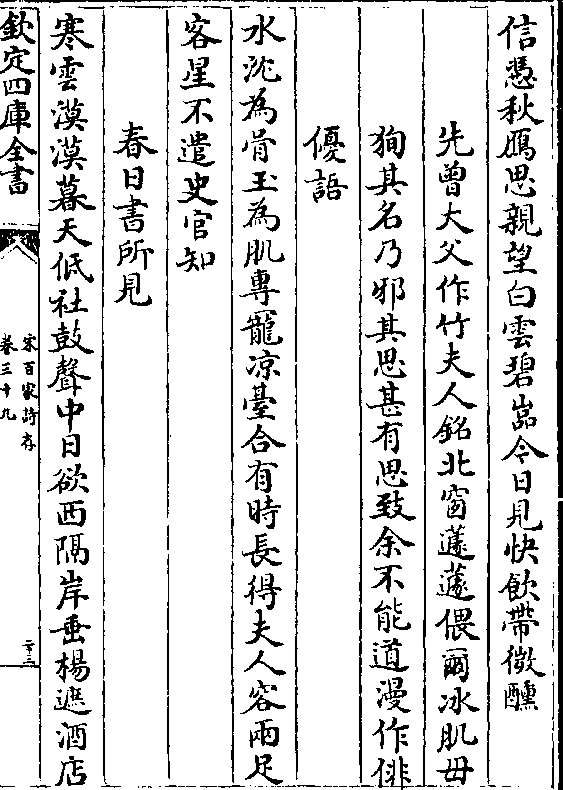 信憑秋鴈思親望白雲碧嵓今日見快飲帶微醺
先曾大父作竹夫人銘北窗蘧蘧偎爾冰肌毋
狥其名乃邪其思甚有思致余不能道漫作俳
優語
水沈為骨玉為肌專寵凉臺合有時長得夫人容兩足
客星不遣史官知
春日書所見
寒雲漠漠暮天低社鼓聲中日欲西隔岸垂楊遮酒店
欽定四庫全書
宋百家詩存
卷三十九
二十三